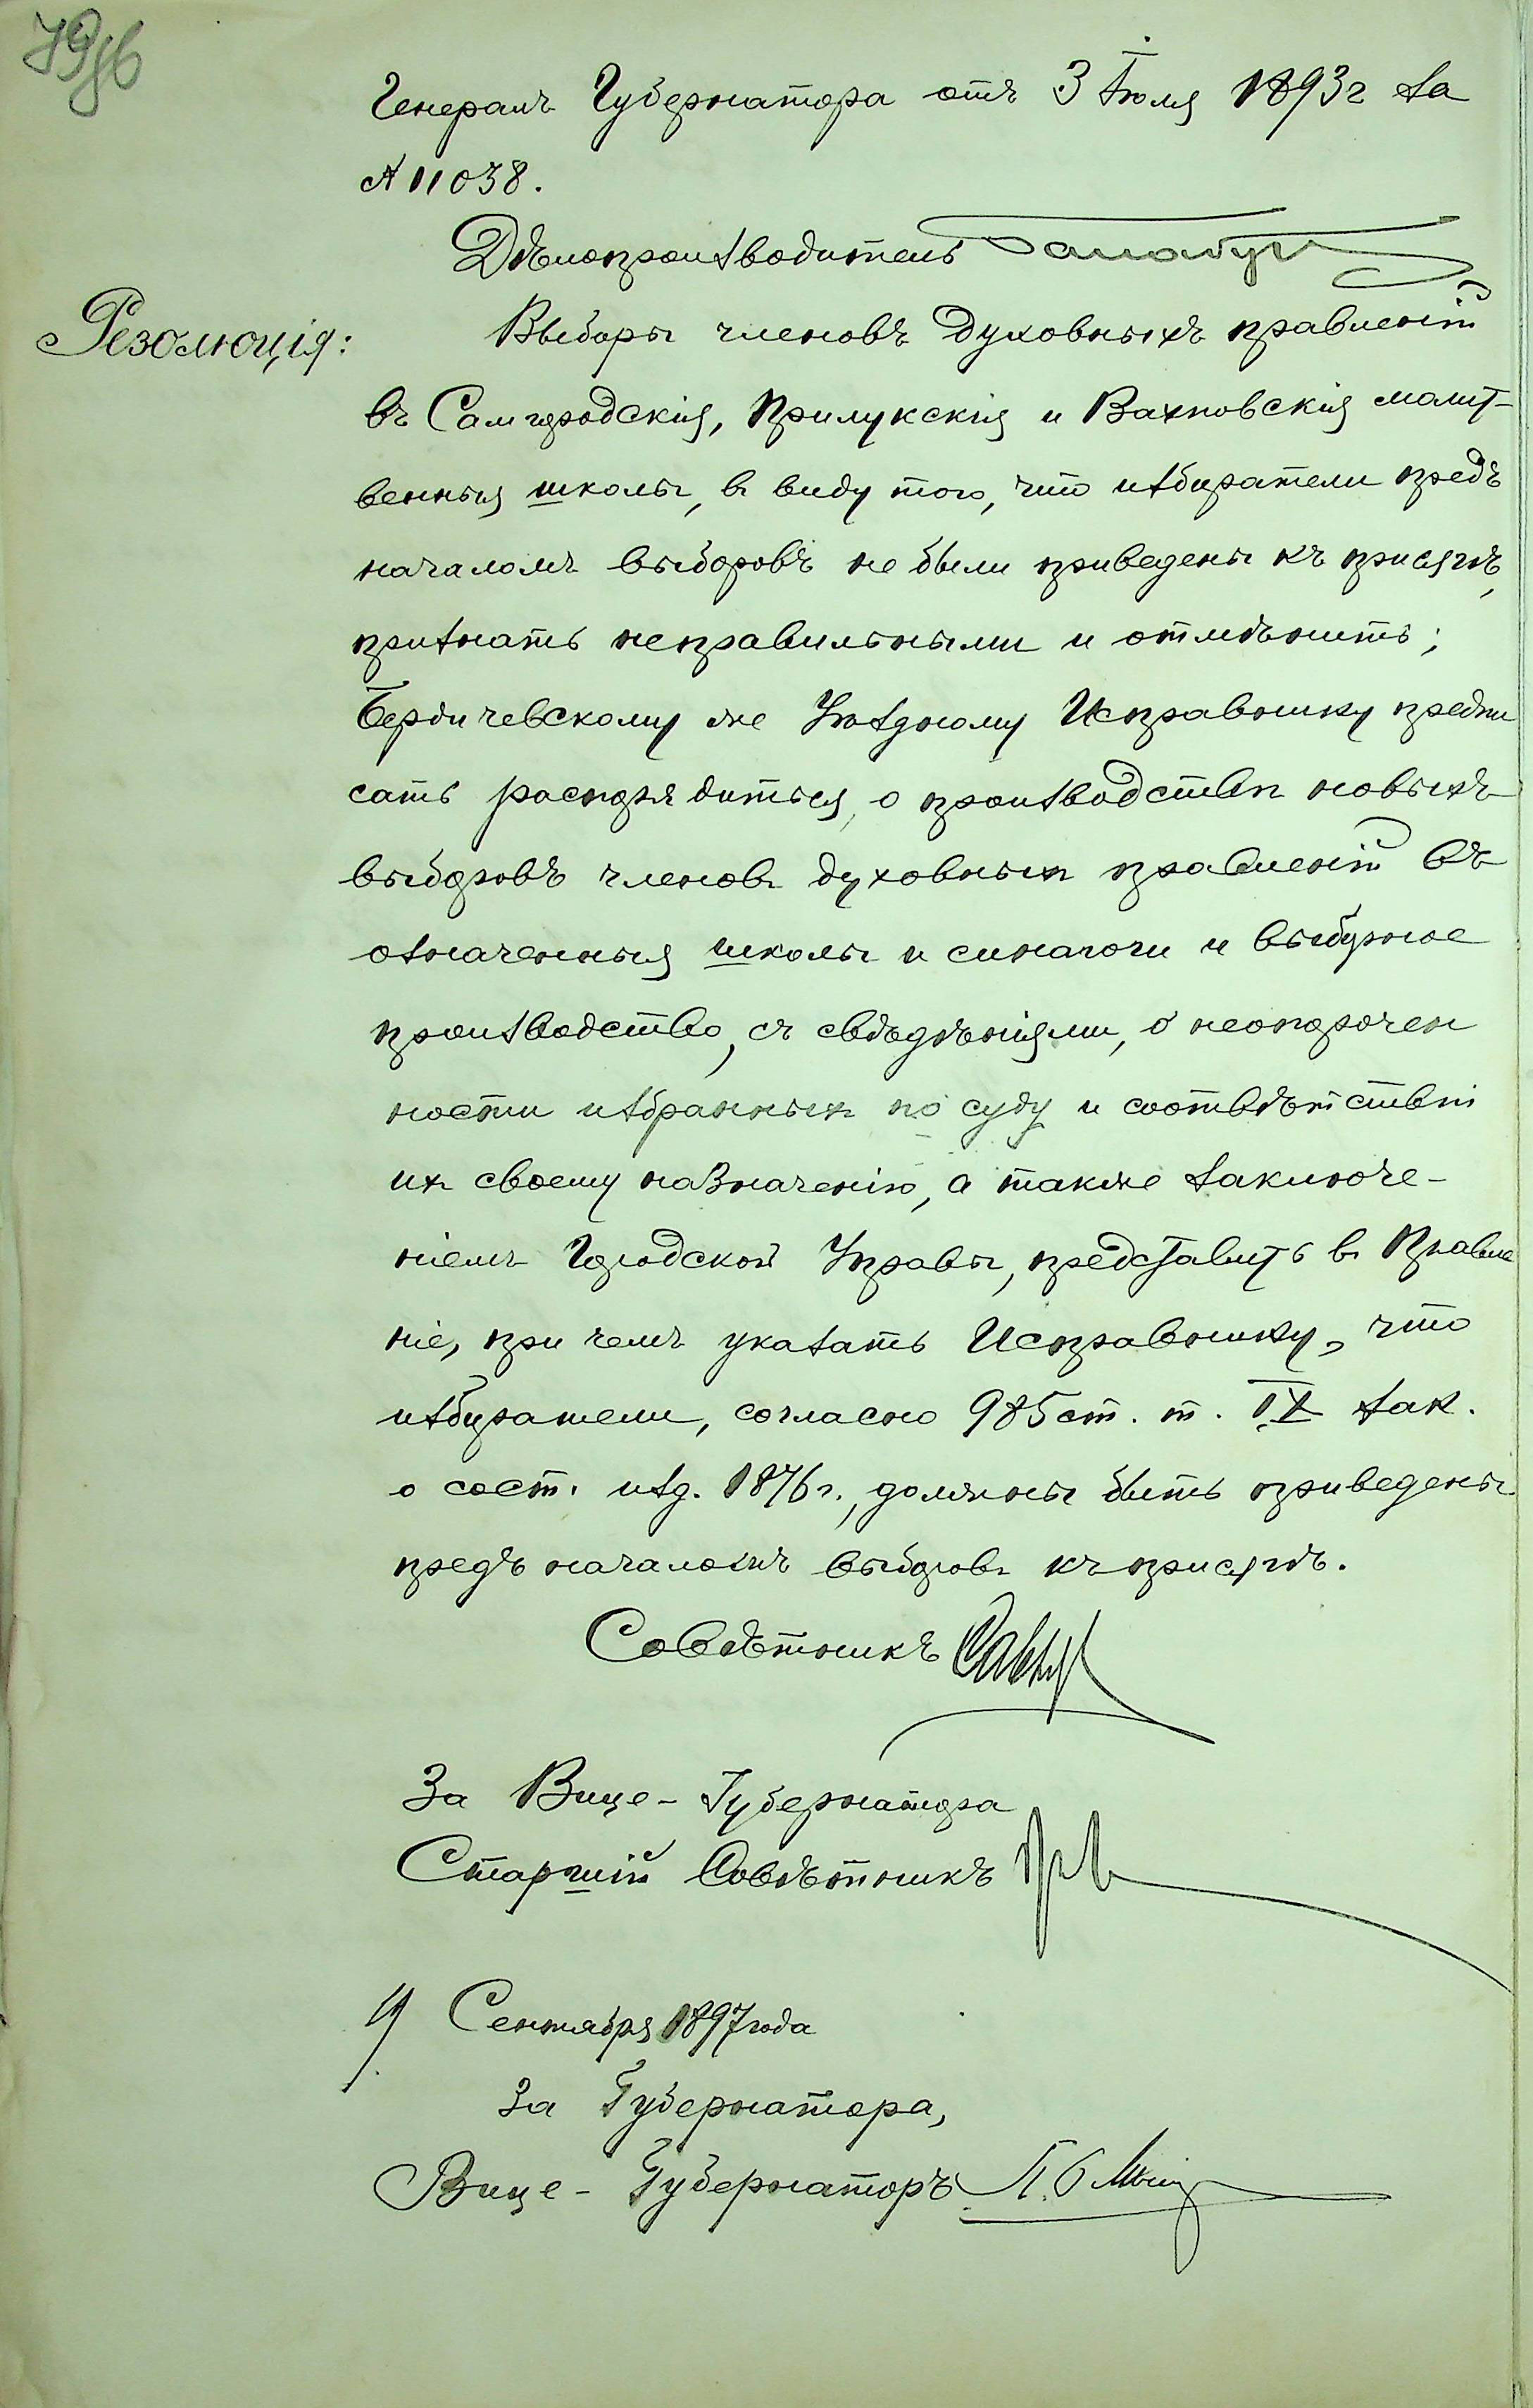 79об
Генералъ Губернатора отъ 3 Іюля 1893г за
№ 11038.
Дѣлопроизводитель
Резолюція:
Выборы членовъ духовныхъ правленій
въ Самгородскія, Прилукскія и Вахновскія молит-
венныя школы, в виду того, что избиратели предъ
началомъ выборовъ не были приведены къ присягѣ,
признать неправильными и отмѣнить;
Бердичевскому же Уѣздному Исправнику предпи
сать распорядиться, о производствѣ новыхъ
выборовъ членовъ духовныхъ правленій въ
означенныя школы и синагоги и выборное
производство, съ свѣдѣніями, о неопорочен
ности избранныхъ по суду и соотвѣтствіи
ихъ своему назначенію, а также заключе-
ніемъ Городской Управы, представить въ Правле
ніе, при чемъ указать Исправнику, что
избиратели, согласно 985 ст. т. IX зак.
о сост. изд. 1876 г., должны быть приведены
предъ началомъ выборовъ къ присягѣ.
Совѣтникъ
За Вице-Губернатора
Старшій Совѣтникъ
Сентября 1897 года
За Губернатора,
Вице-Губернаторъ